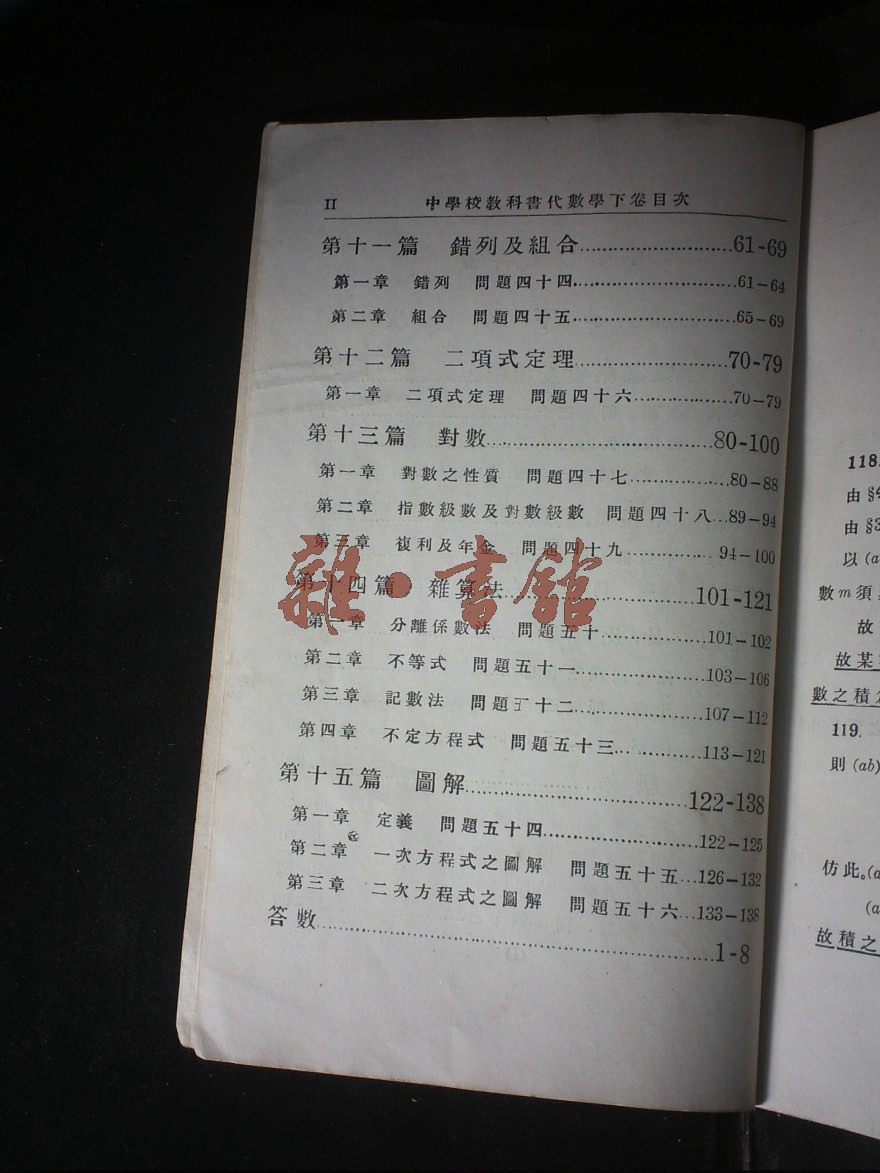 II 中學校教科書代數學下卷目次
第十一篇 錯列及組合……………………61-69
第一章 錯列 問題四十四……………………61-64
第二章 組合 問題四十五……………………65-69
第十二篇 二項式定理……………………70-79
第一章 二項式定理 問題四十六……………70-79
第十三篇 對數……………………80-100
第一章 對數之性質 問題四十七……………80-88
第二章 指數級數及對數級數 問題四十八…89-94
第三章 複利及年金 問題四十九……………94-100
第十四篇 雜算法……………………101-121
第一章 分離係數法 問題五十……………101-102
第二章 不等式 問題五十一……………103-106
第三章 記數法 問題五十二……………107-112
第四章 不定方程式 問題五十三……………113-121
第十五篇 圖解……………………122-138
第一章 定義 問題五十四……………122-125
第二章 一次方程式之圖解 問題五十五…126-132
第三章 二次方程式之圖解 問題五十六…133-138
答數……………………1-8
雜·書館
118.
由 §
由 §3
以 (a
數 m 須
故
故某
數之積
119.
則 (ab)
仿此。(a
(a
故積之